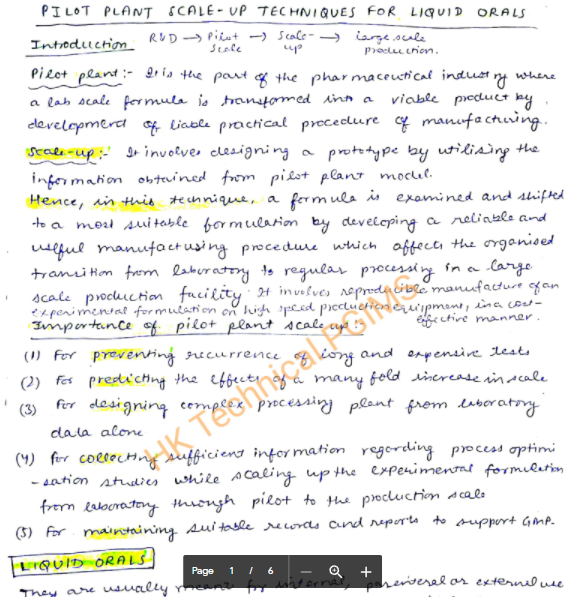 PILOT PLANT SCALE-UP TECHNIQUES FOR LIQUID ORALS
Introduction R&D → Pilot Scale → Scale-up → large scale production.
Pilot plant :- It is the part of the pharmaceutical industry where
a lab scale formula is transformed into a viable product by
development of liable practical procedure of manufacturing.
Scale-up :- It involves designing a prototype by utilising the
information obtained from pilot plant model.
Hence, in this technique, a formula is examined and shifted
to a most suitable formulation by developing a reliable and
useful manufacturing procedure which affects the organised
transition from laboratory to regular processing in a large
scale production facility. It involves reproducible manufacture of an
experimental formulation on high speed production equipment, in a cost-
effective manner.
Importance of pilot plant scale up :-
(1) For preventing recurrence of long and expensive tests
(2) For predicting the effects of a many fold increase in scale
(3) For designing complex processing plant from laboratory
data alone
(4) For collecting sufficient information regarding process optimi
-sation studies while scaling up the experimental formulation
from laboratory through pilot to the production scale
(5) For maintaining suitable records and reports to support GMP.
LIQUID ORALS
They are usually meant for internal, parenteral or external use
HK Technical PGIMS
Page 1 / 6